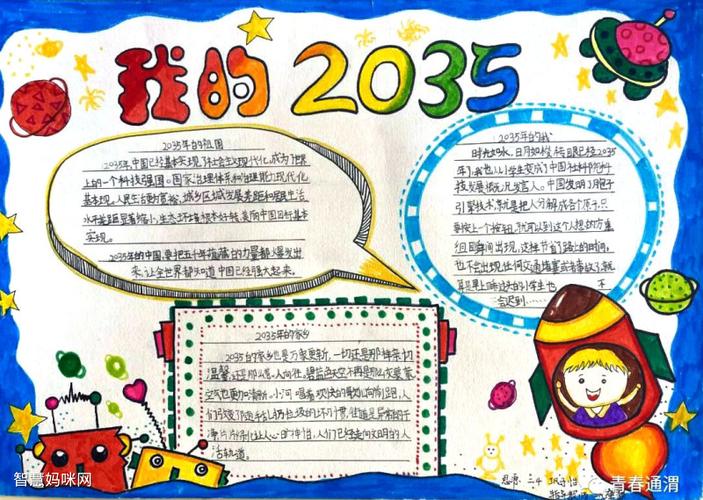 我的2035
2035年的祖国
2035年,中国已经基本实现了社会主义现代化,成为了世
上的一个科技强国。国家治理体系和治理能力现代化
基本现,人民生活更为宽裕,城乡区域发展差距和居民生活
水平差距显著缩小,生态环境根本好转,美丽中国目标基本
实现。
2035年的中国,要把五千年蕴藏的力量都爆发出
来,让全世界都知道中国已经强大起来。
2035年的我
时光如水,日月如梭,转眼已经2035
年了,我也从小学生变成了中国社科院科
技发展状况发言人。中国发明了电子
引擎技术,就是把人分解成各个原子,只
要按上一个按钮,就可以到这个人想去的方重
组回瞬间出现,这样节省了路上的时间,
也不会出现任何交通堵塞或者事故了,就
算早上睡过头的小学生也不
会迟到……
2035年的家乡
2035的家乡也是万家更新,一切还是那样亲切
温馨,还是那么令人向往。碧蓝的天空不再是那么灰蒙蒙,
空气也更加清新。小河唱着欢快的歌儿向前跑,人
们
人们已经走向文明的人
活轨道。
三4
智慧妈咪网
青春通渭